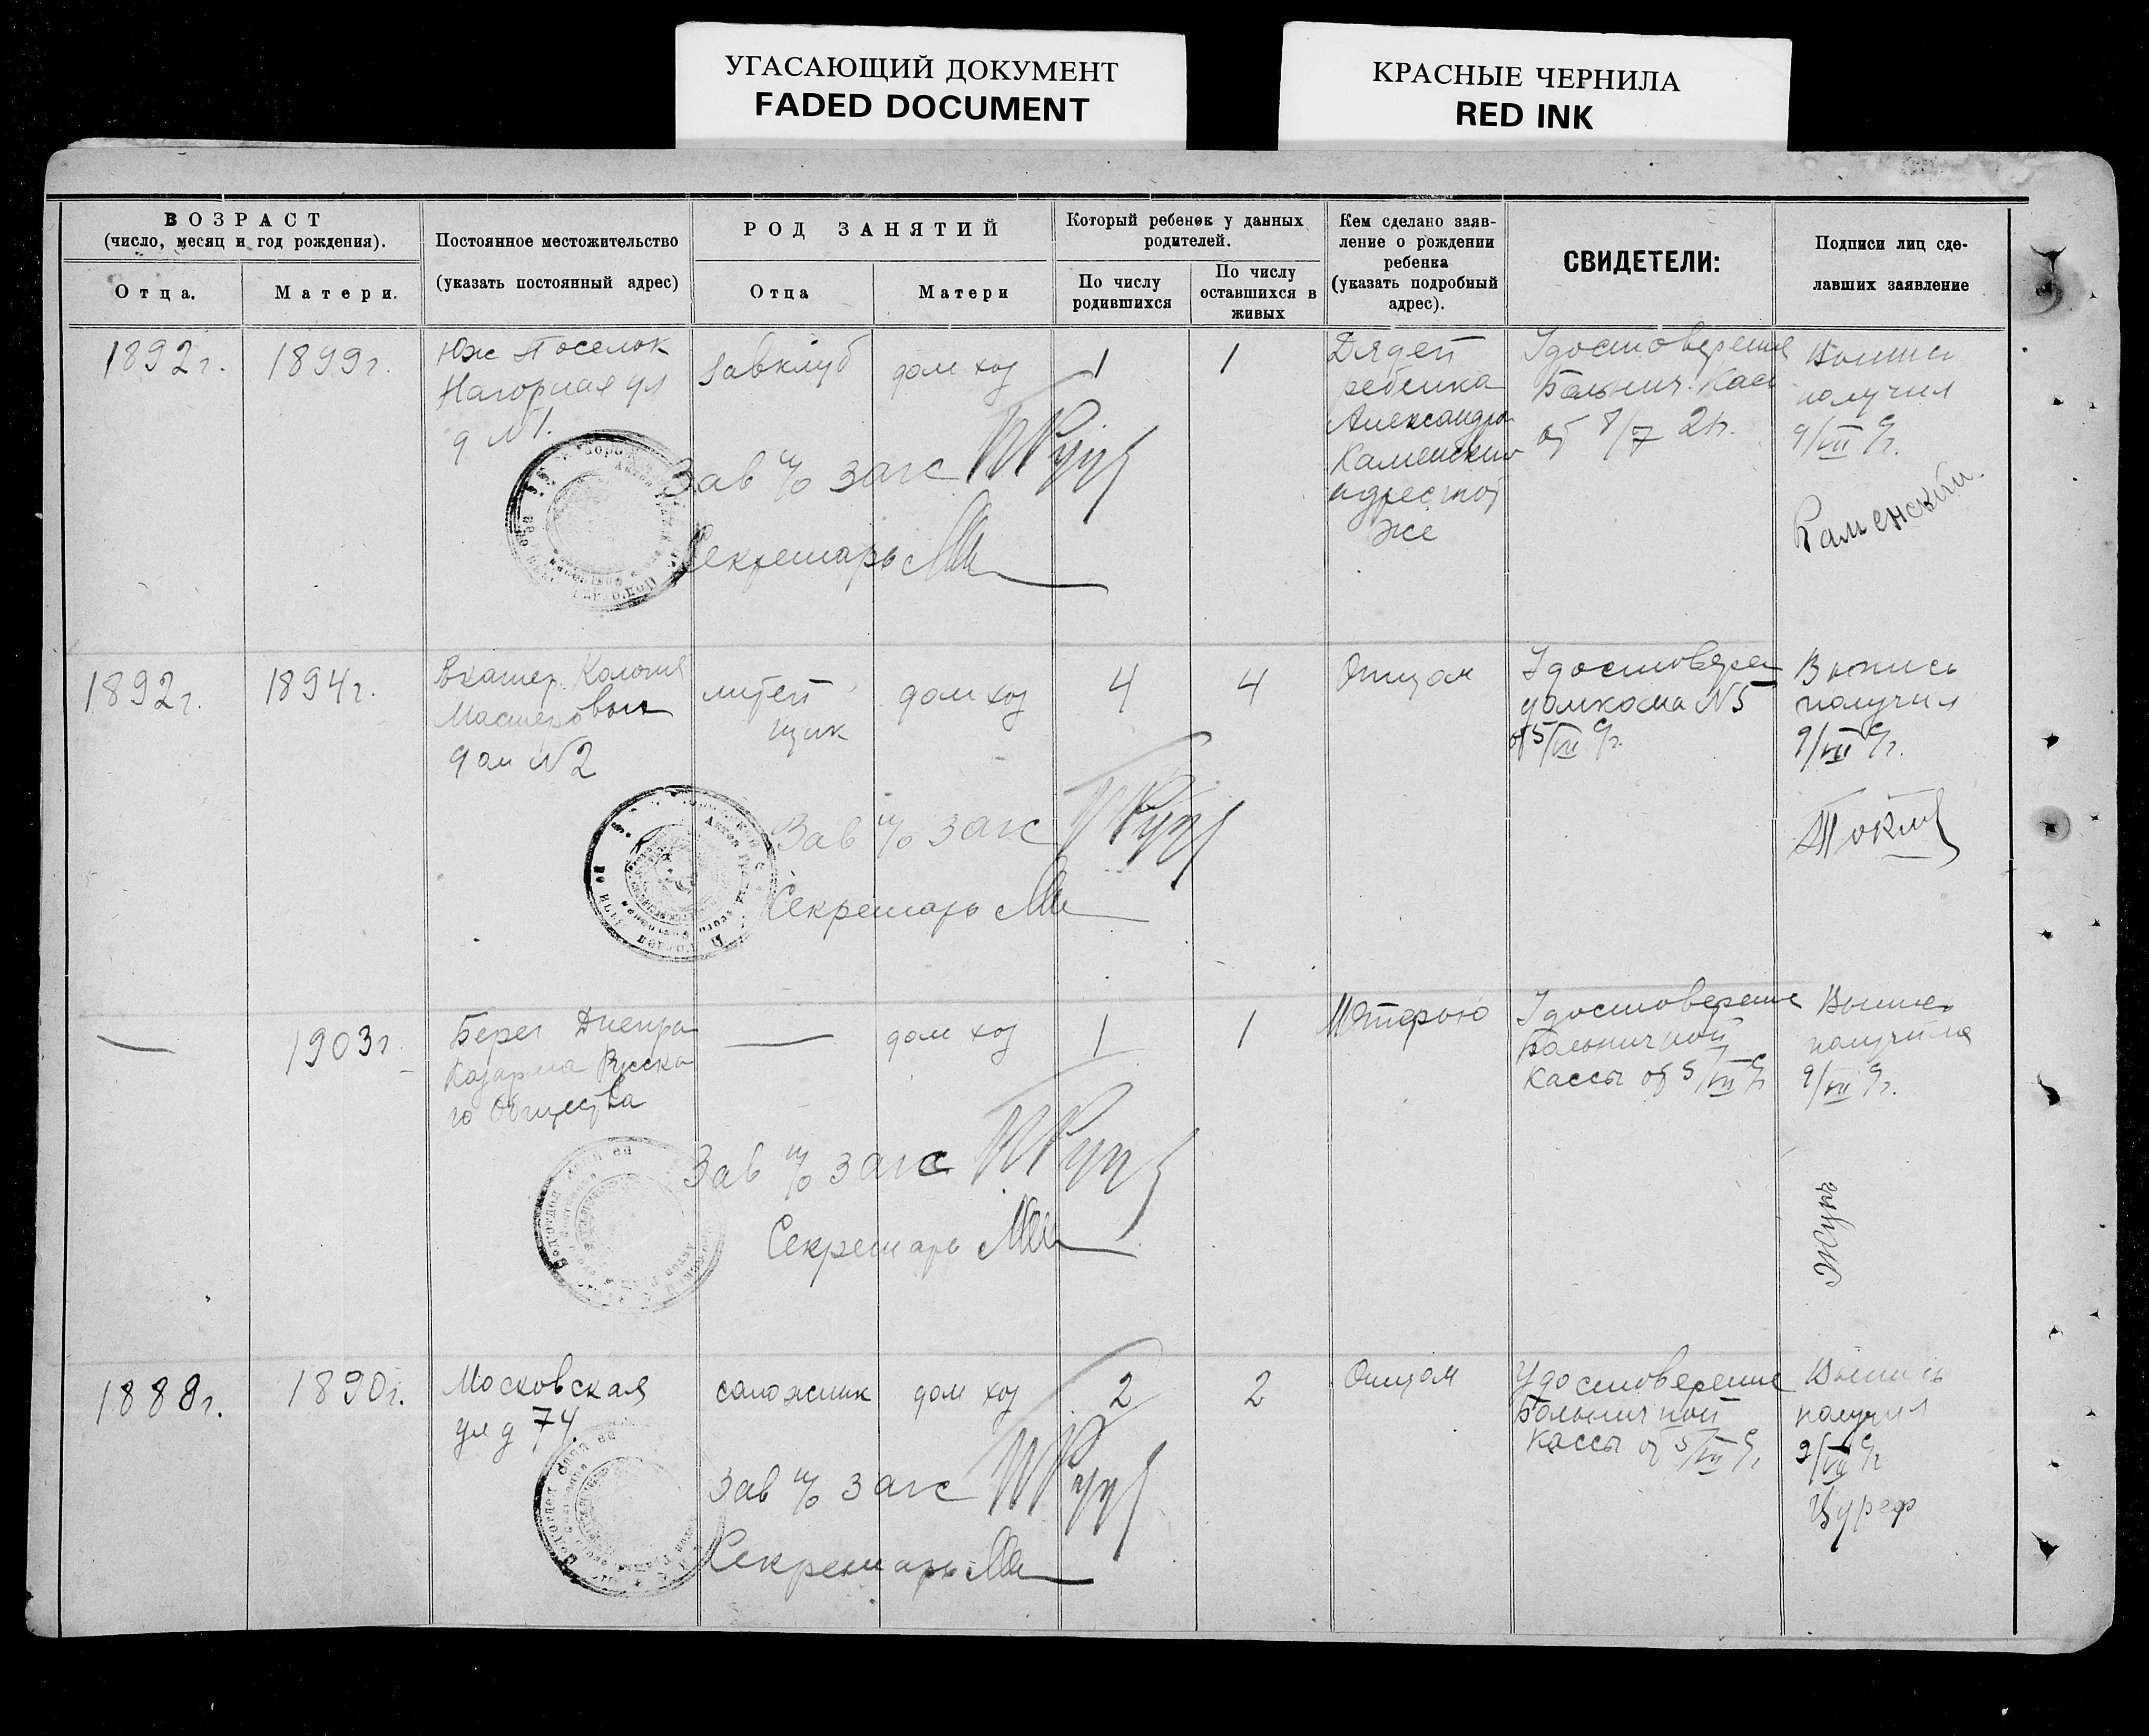 УГАСАЮЩИЙ ДОКУМЕНТ
FADED DOCUMENT
КРАСНЫЕ ЧЕРНИЛА
RED INK
ВОЗРАСТ
(число, месяц и год рождения).
Отца.
Матери.
Постоянное местожительство
(указать постоянный адрес)
РОД ЗАНЯТИЙ
Отца
Матери
Который ребенок у данных
родителей.
По числу
родившихся
По числу
оставшихся в
живых
Кем сделано заяв-
ление о рождении
ребенка
(указать подробный
адрес).
СВИДЕТЕЛИ:
Подписи лиц сде-
лавших заявление
1892г.
1899г.
Юж Поселок
Нагорная ул
д N1.
завклуб
дом хоз
1
1
Дядей
ребенка
Александр
Каменский
адрес той
же
Удостоверение
Больнич. Кас
от 8/7 24г.
Выпись
получил
9/VII
Каменский
Зав п/о загс
Секретарь
1892г.
1894г.
Екатер. Колония
Мастеровых
дом N2
литей
щик
дом хоз
4
4
Отцом
Удостоверен
домкома N5
от 5/VII
Выпись
получил
9/VII
Зав п/о загс
Секретарь
—
1903г.
Берег Днепра
Казарма Русско
го Общества
—
дом хоз
1
1
Матерью
Удостоверение
Больничной
Кассы от 5/VII
Выпись
получила
9/VII
Зав п/о загс
Секретарь
1888г.
1890г.
Московская
ул д 74.
сапожник
дом хоз
2
2
Отцом
Удостоверение
Больничной
Кассы от 5/VII
Выпись
получил
9/VII
Зав п/о загс
Секретарь